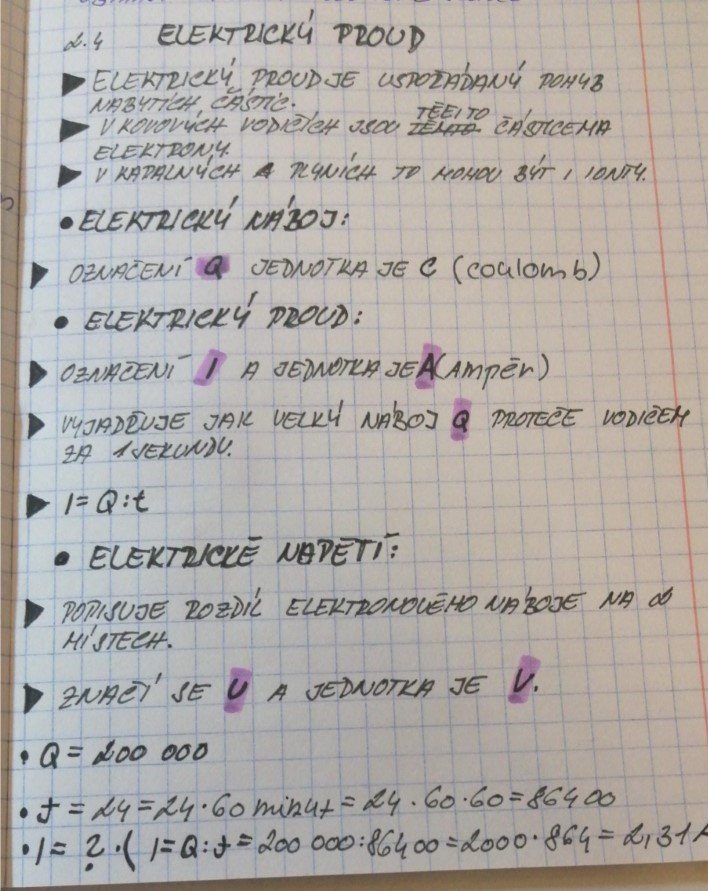 2.4 ELEKTRICKÝ PROUD
▶ ELEKTRICKÝ PROUD JE USPOŘÁDANÝ POHYB
NABYTÍCH ČÁSTIC.
▶ V KOVOVÝCH VODIČÍCH JSOU TĚMTO ČÁSTICEMA
TĚEITO
ELEKTRONY.
▶ V KAPALNÝCH A PLYNÍCH TO MOHOU BÝT I IONTY.
• ELEKTRICKÝ NÁBOJ:
▶ OZNAČENÍ Q JEDNOTKA JE C (coulomb)
• ELEKTRICKÝ PROUD:
▶ OZNAČENÍ I A JEDNOTKA JE A (Ampér)
▶ VYJADŘUJE JAK VELKÝ NÁBOJ Q PROTEČE VODIČEM
ZA 1 SEKUNDU.
▶ I = Q:t
• ELEKTRICKÉ NAPĚTÍ:
▶ POPISUJE ROZDÍL ELEKTRONOVÉHO NÁBOJE NA 2
MÍSTECH.
▶ ZNAČÍ SE U A JEDNOTKA JE V.
• Q = 200 000
• t = 24 = 24 · 60 minut = 24 · 60 · 60 = 86400
• I = ? · ( I = Q:t = 200 000:86400 = 2000 · 864 = 2,31 A